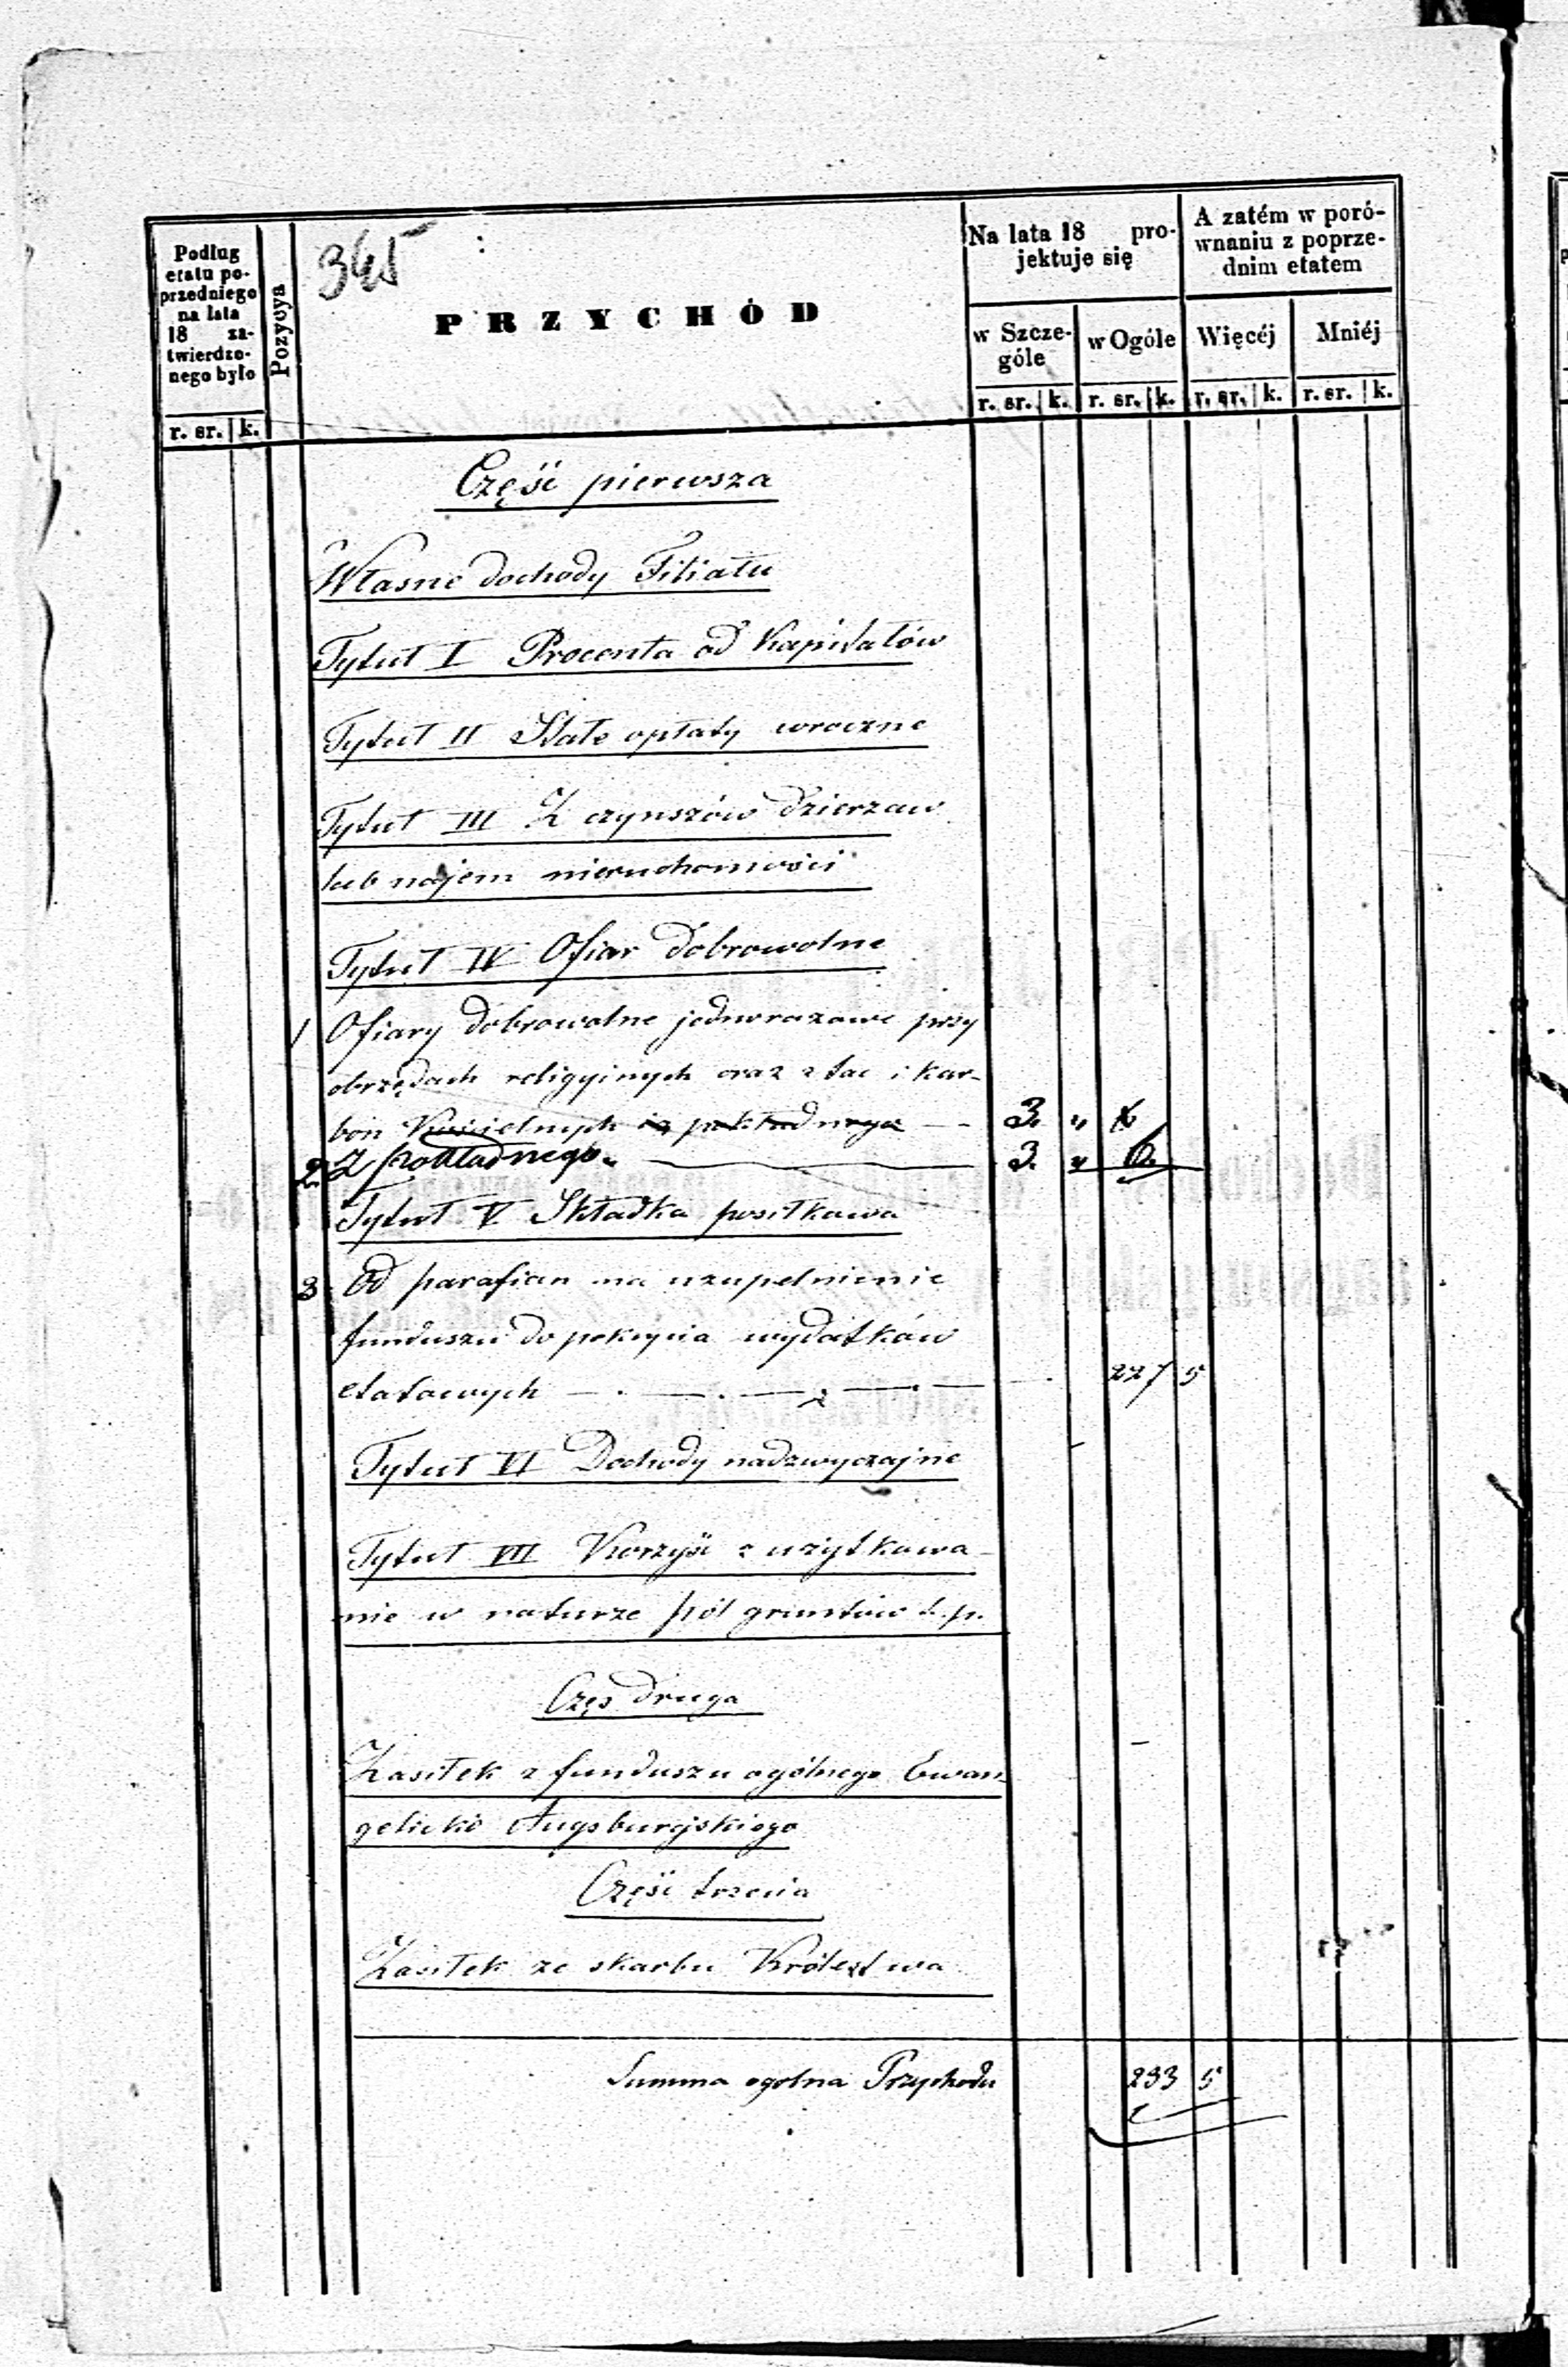 345
Podług
etatu po-
przedniego
na lata
18 za-
twierdzo-
nego było
r. sr. k.
Pozycya
PRZYCHÓD
Na lata 18 pro-
jektuje się
w Szcze-
góle
r. sr. k.
w Ogóle
r. sr. k.
A zatém w poró-
wnaniu z poprze-
dnim etatem
Więcéj
r. sr. k.
Mniéj
r. sr. k.
Część pierwsza
Własne dochody Filiału
Tytuł I Procenta od Kapitałów
Tytuł II Stałe opłaty wroczne
Tytuł III Z czynszów dzierzaw
lub najem nieruchomości
Tytuł IV Ofiar dobrowolne
1 Ofiary dobrowolne jednorazowe przy
obrzędach religyinych oraz z tac i kar-
bon Kościelnych i z pokładnego - - 3. " 6
2. Z pokładnego. 3. " 6.
Tytuł V Składka posiłkowa
3 Od parafian na uzupełnienie
funduszu do pokrycia wydatków
etatowych 227 5
Tytuł VI Dochody nadzwyczajne
Tytuł VII Korzyść z użytkowa-
nie w naturze pól gruntów t.p.
Częś druga
Zasiłek z funduszu ogólnego Ewan-
gelicko Augsburgskiego
Część trzecia
Zasiłek ze skarbu Królestwa
Summa ogolna Przychodu 233 5